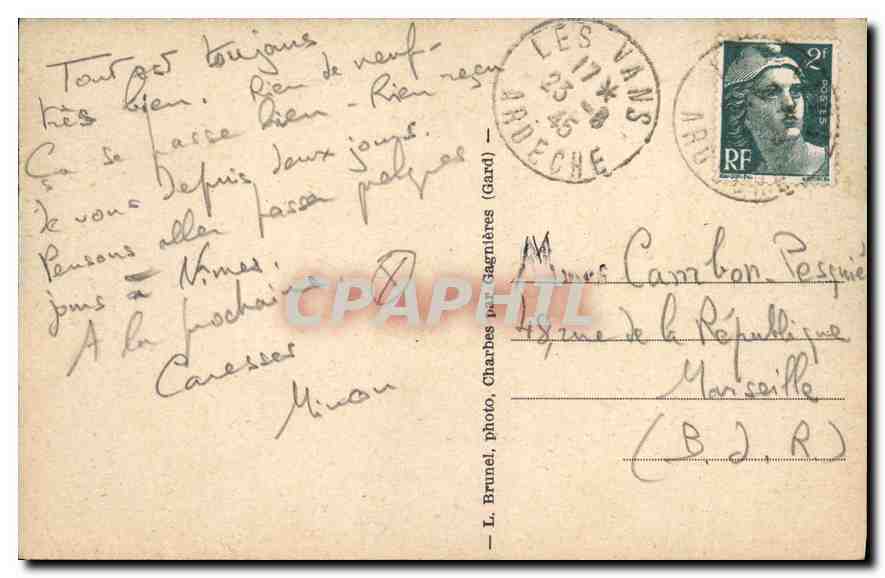 Tout est toujours
très bien. Rien de neuf -
Ça se passe bien - Rien reçu
de vous depuis deux jours.
Pensons aller passer quelques
jours à Nîmes.
A la prochaine.
Caresses
Minou
LES VANS
17 *
23 -8
45
ARDECHE
2F
POSTES
RF
ARD
Mmes Cambon-Pesquié
48, rue de la République
Marseille
(B. d. R)
— L. Brunel, photo, Charbes par Gagnières (Gard) —
CPAPHIL